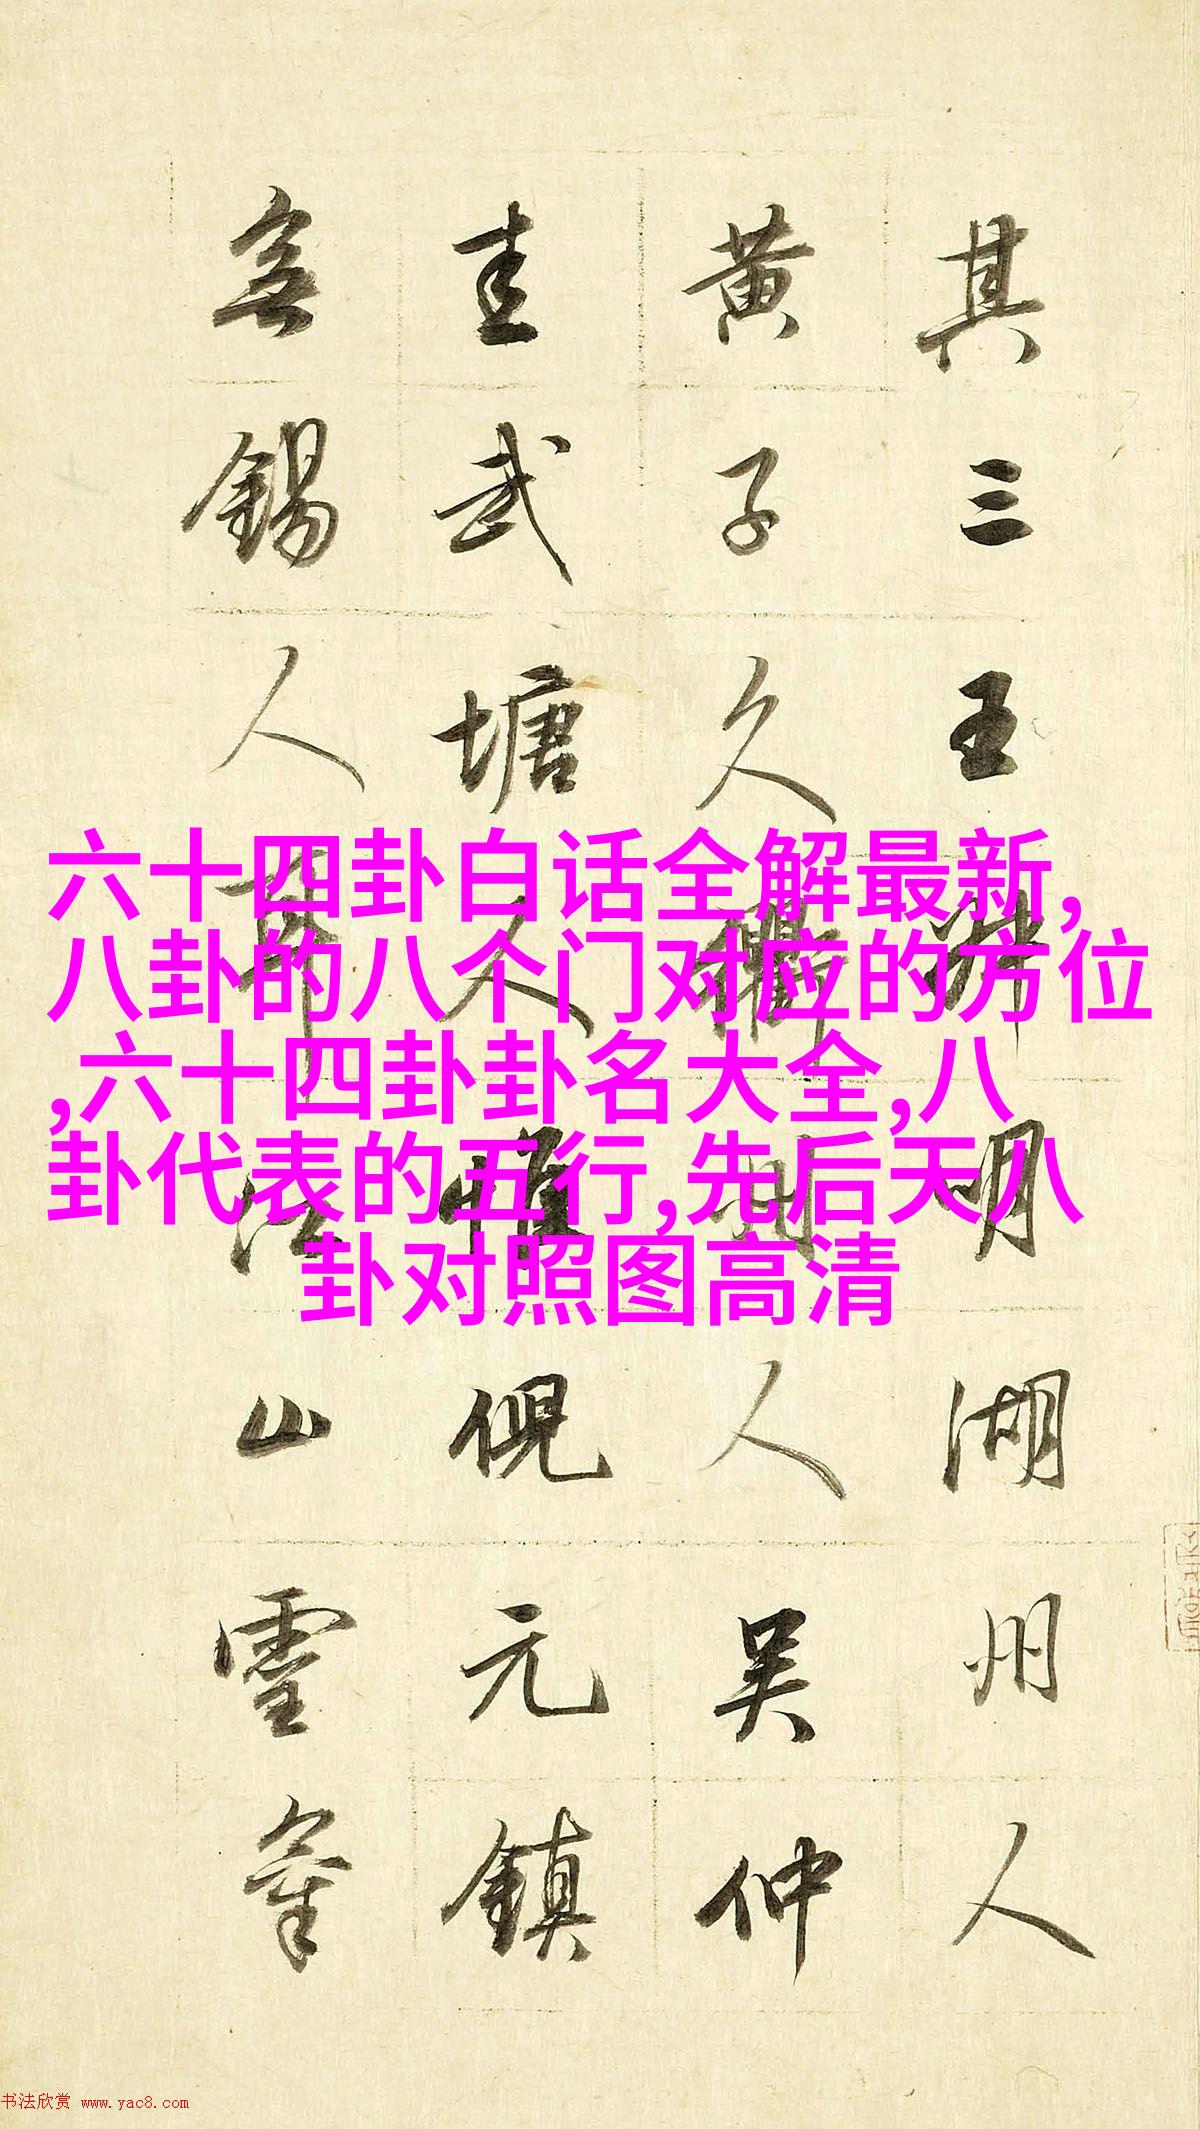 其三王叔明湖州人
黄子久衢州人吴仲
圭武塘人惟倪元鎮
無錫人耳江山靈氣
六十四卦白话全解最新,
八卦的八个门对应的方位
,六十四卦卦名大全,八
卦代表的五行,先后天八
卦对照图高清
书法欣赏 www.yac8.com